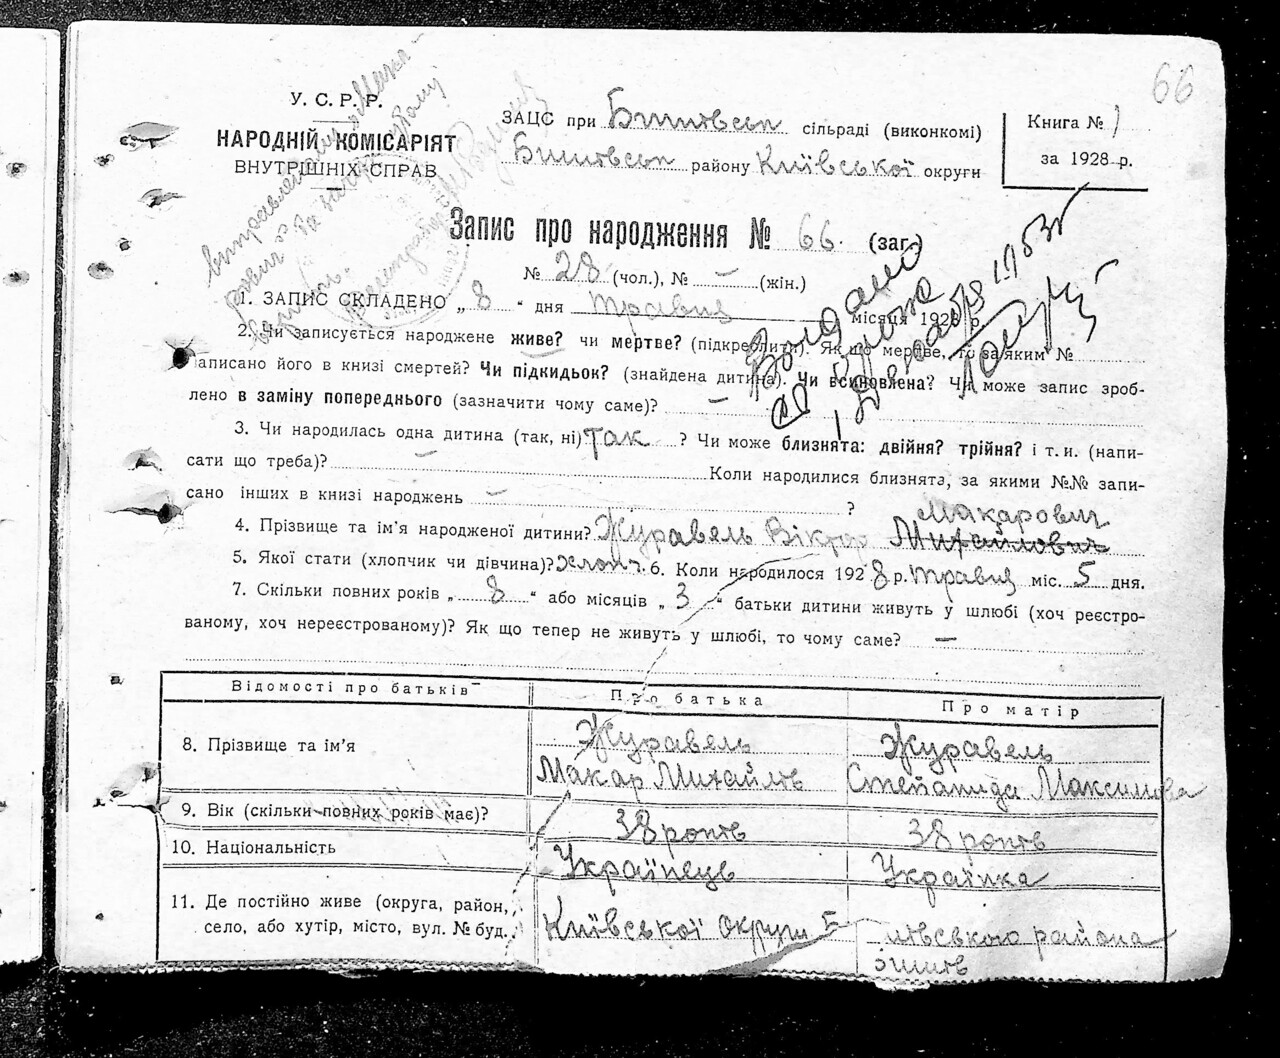 66
У. С. Р. Р.
НАРОДНІЙ КОМІСАРІЯТ
ВНУТРІШНІХ СПРАВ
ЗАЦС при Бишовськ сільраді (виконкомі)
Бишовськ району Київської округи
Книга № 1
за 1928 р.
Запис про народження № 66. (заг.)
№ 28 (чол.), № – (жін.)
1. ЗАПИС СКЛАДЕНО „ 8 “ дня травня місяця 1928 р.
2. Чи записується народжене живе? чи мертве? (підкреслити). Як що мертве, то за яким №
записано його в книзі смертей? Чи підкидьок? (знайдена дитина). Чи всиновлена? Чи може запис зроб-
лено в заміну попереднього (зазначити чому саме)? –
3. Чи народилась одна дитина (так, ні) так ? Чи може близнята: двійня? трійня? і т. и. (напи-
сати що треба)? – Коли народилися близнята, за якими №№ запи-
сано інших в книзі народжень – ?
Макарович
4. Прізвище та ім’я народженої дитини? Журавель Віктор Михайлович
5. Якої стати (хлопчик чи дівчина)? хлопч. 6. Коли народилося 1928 р. травня міс. 5 дня.
7. Скільки повних років „ 8 “ або місяців „ 3 “ батьки дитини живуть у шлюбі (хоч реєстро-
ваному, хоч нереєстрованому)? Як що тепер не живуть у шлюбі, то чому саме? –
Відомості про батьків Про батька Про матір
8. Прізвище та ім’я Журавель Журавель
Макар Михайлів Степанида Максимова
9. Вік (скільки повних років має)? 38 років 38 років
10. Національність Українець Українка
11. Де постійно живе (округа, район,
село, або хутір, місто, вул. № буд. Київської округи Б ишівського района
Бишів